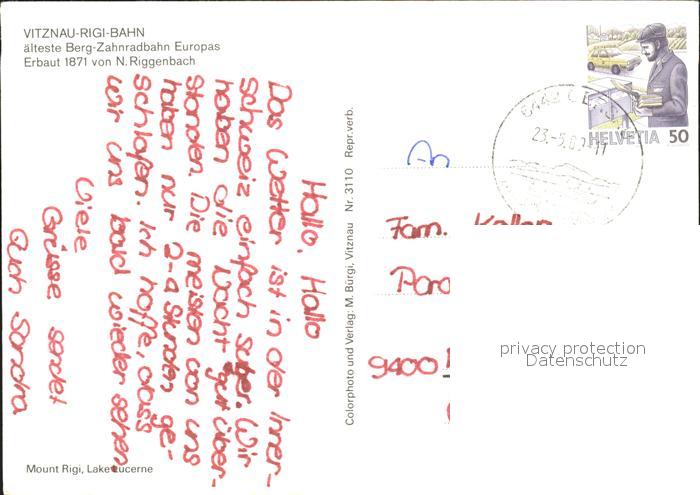 VITZNAU-RIGI-BAHN
älteste Berg-Zahnradbahn Europas
Erbaut 1871 von N. Riggenbach
Hallo, Hallo
Das Wetter ist in der Inner-
schweiz einfach super. Wir
haben die Nacht gut über-
standen. Die meisten von uns
haben nur 2-4 Stunden ge-
schlafen. Ich hoffe, dass
wir uns bald wieder sehen
Viele
Grüsse sendet
Euch Sandra
Mount Rigi, Lake Lucerne
Colorphoto und Verlag: M. Bürgi, Vitznau Nr. 3110 Repr. verb.
HELVETIA 50
6442
23.-5.
An
Fam.
9400
privacy protection
Datenschutz